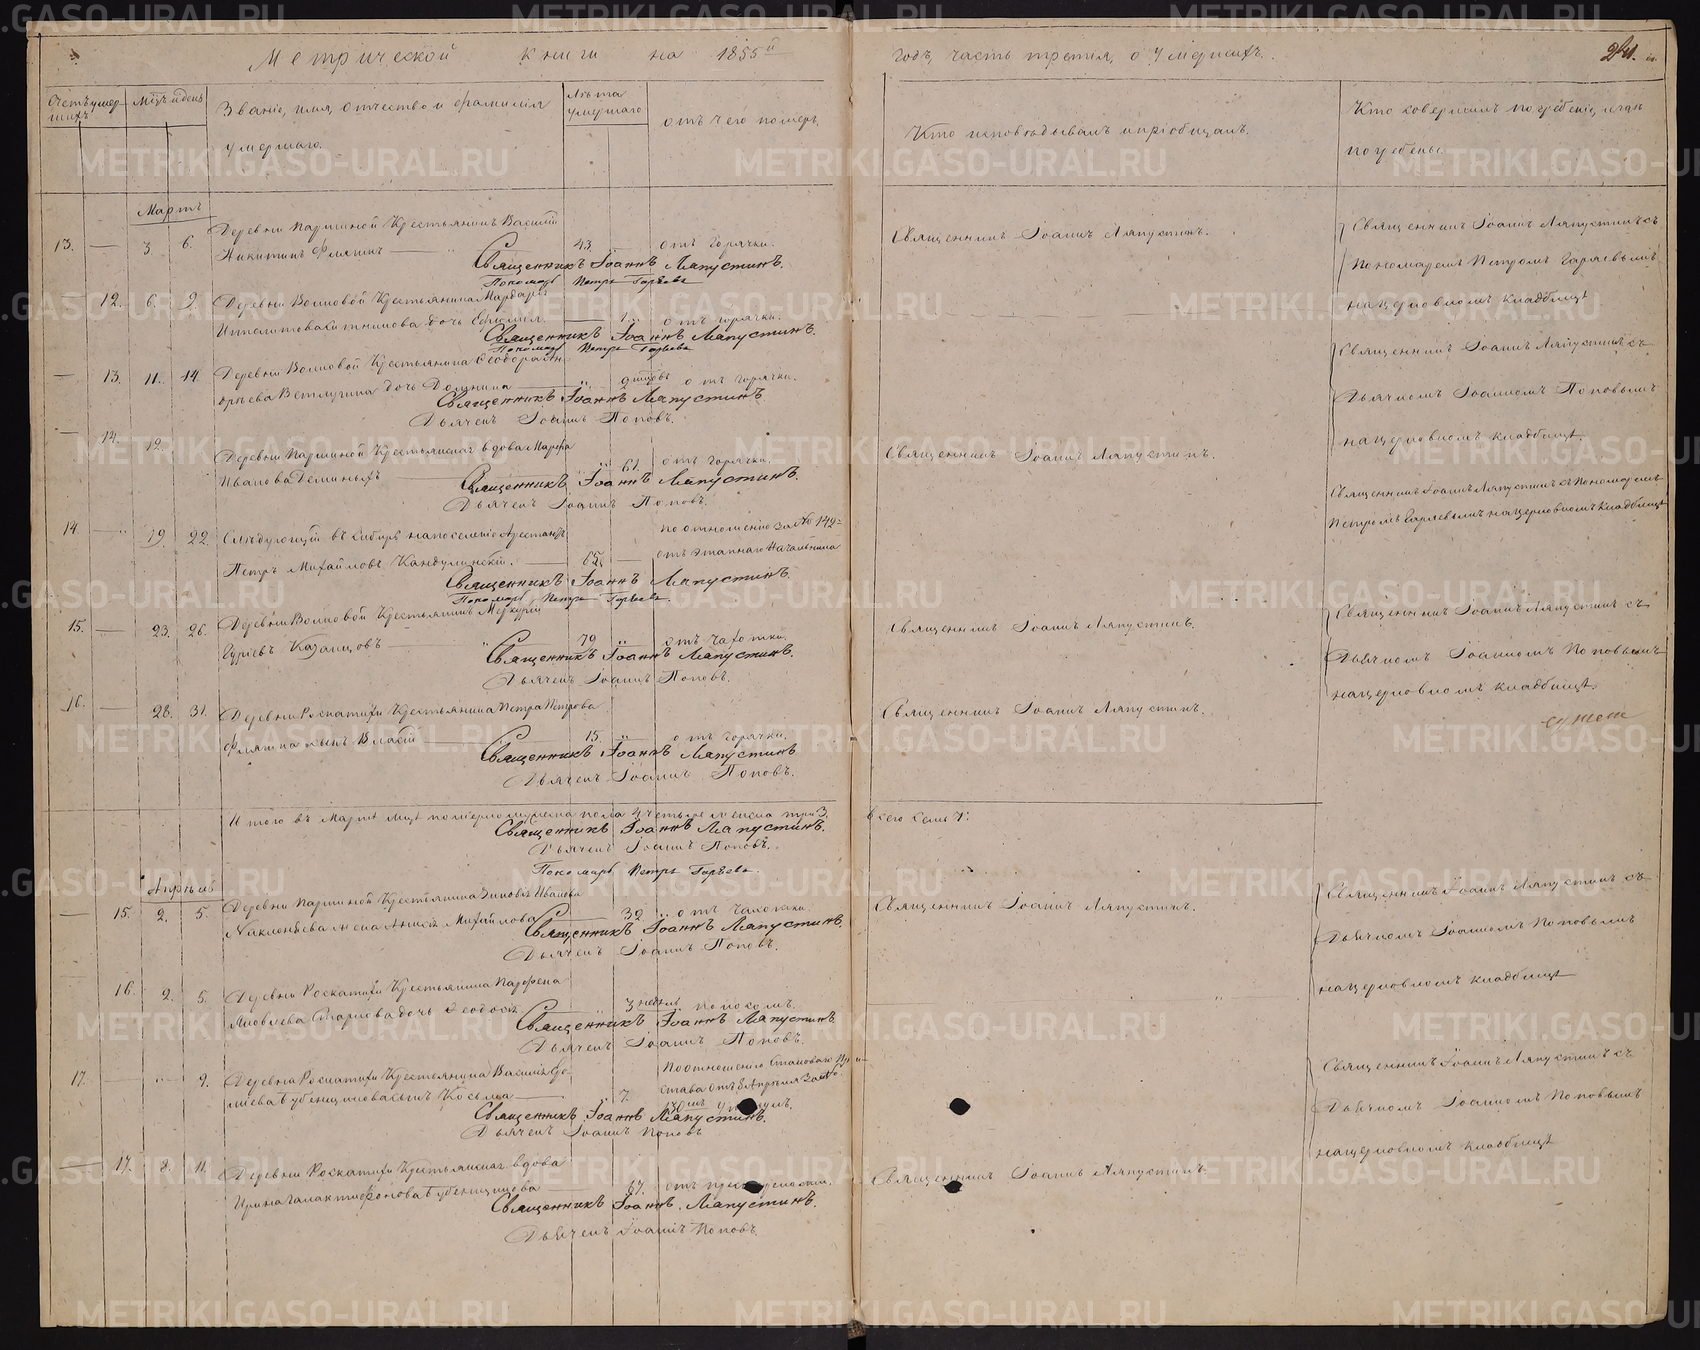 Метрической книги на 1855й
годъ, часть третия, о умершихъ.
241.
Счетъ умер-
шихъ
Мцъ и день
Званіе, имя, отчество и фамилія
умершаго.
Лѣта
умершаго
отъ чего померъ.
Кто исповѣдывалъ и пріобщалъ.
Кто совершалъ погребеніе и гдѣ
погребены.
Мартъ
13. — 3. 6. Деревни Паршиной Крестьянинъ Василій
Никитинъ Флягинъ — 43. — отъ горячки.
Священникъ Іоаннъ Ляпустинъ.
Пономарь Петръ Гаряевъ
Священникъ Іоаннъ Ляпустинъ.
Священникъ Іоаннъ Ляпустинъ съ
Пономаремъ Петромъ Гаряевымъ
на церковномъ кладбищѣ
12. 6. 9. Деревни Волковой Крестьянина Мардарія
дочь 1. отъ горячки.
Священникъ Іоаннъ Ляпустинъ.
Пономарь Петръ Гаряевъ
— 13. 11. 14. Деревни Волковой Крестьянина
Ветлугина дочь Домнина — 2 отъ горячки.
Священникъ Іоаннъ Ляпустинъ
Дьячекъ Іоаннъ Поповъ.
Священникъ Іоаннъ Ляпустинъ съ
Дьячкомъ Іоанномъ Поповымъ
на церковномъ кладбищѣ.
— 14. 19. Деревни Паршиной Крестьянская вдова Марфа
Иванова — 61. отъ горячки.
Священникъ Іоаннъ Ляпустинъ.
Дьячекъ Іоаннъ Поповъ.
Священникъ Іоаннъ Ляпустинъ.
Священникъ Іоаннъ Ляпустинъ съ Пономаремъ
Петромъ Гаряевымъ на церковномъ кладбищѣ
14. — 19. 22. Слѣдующій въ Сибирь на поселеніе Арестантъ
Петръ Михайловъ — 65. — по отношенію за № 149
отъ этапнаго Начальника
Священникъ Іоаннъ Ляпустинъ.
Пономарь Петръ Гаряевъ
15. — 23. 26. Деревни Волковой Крестьянинъ Меркурій
Гурьевъ Казанцовъ — 79 отъ чахотки.
Священникъ Іоаннъ Ляпустинъ.
Дьячекъ Іоаннъ Поповъ.
Священникъ Іоаннъ Ляпустинъ.
Священникъ Іоаннъ Ляпустинъ съ
Дьячкомъ Іоанномъ Поповымъ
на церковномъ кладбищѣ.
16. — 28. 31. Деревни Роскатихи Крестьянина Петра Петрова
Флягина сынъ Власій — 15. отъ горячки.
Священникъ Іоаннъ Ляпустинъ
Дьячекъ Іоаннъ Поповъ.
Священникъ Іоаннъ Ляпустинъ.
Итого въ Мартѣ мцѣ померло мужеска пола 4 четыре и женска три 3.
всего семь 7:
Священникъ Іоаннъ Ляпустинъ.
Дьячекъ Іоаннъ Поповъ.
Пономарь Петръ Гаряевъ.
Апрѣль
— 15. 2. 5. Деревни Паршиной Крестьянина Зиновія Иванова
жена Михайлова — 32 отъ чахотки.
Священникъ Іоаннъ Ляпустинъ.
Дьячекъ Іоаннъ Поповъ.
Священникъ Іоаннъ Ляпустинъ.
Священникъ Іоаннъ Ляпустинъ съ
Дьячкомъ Іоанномъ Поповымъ
на церковномъ кладбищѣ
16. 2. 5. Деревни Роскатихи Крестьянина Парфена
Яковлева дочь Ѳеодосія — 3 недѣли поносомъ.
Священникъ Іоаннъ Ляпустинъ
Дьячекъ Іоаннъ Поповъ.
17. — 9. Деревни Роскатихи Крестьянина Василія
сынъ Косьма — 7. По отношенію Становаго При-
става отъ 8 Апрѣля за №
Священникъ Іоаннъ Ляпустинъ.
Дьячекъ Іоаннъ Поповъ
Священникъ Іоаннъ Ляпустинъ съ
Дьячкомъ Іоанномъ Поповымъ
на церковномъ кладбищѣ
— 17. 8. 11. Деревни Роскатихи Крестьянская вдова
Ирина Галактионова Губенщикова — 67. отъ престарелости.
Священникъ Іоаннъ Ляпустинъ.
Дьячекъ Іоаннъ Поповъ.
Священникъ Іоаннъ Ляпустинъ.
METRIKI.GASO-URAL.RU